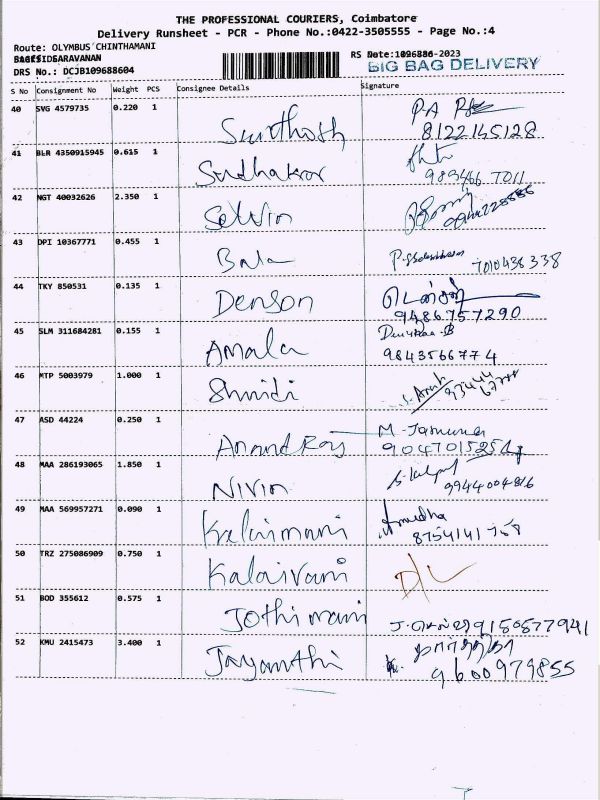 THE PROFESSIONAL COURIERS, Coimbatore
Delivery Runsheet - PCR - Phone No.:0422-3505555 - Page No.:4
Route: OLYMBUS CHINTHAMANI
SARAVANAN
DRS No.: DCJB109688604
RS Note:1096886-2023
BIG BAG DELIVERY
S No Consignment No Weight PCS Consignee Details Signature
40 SVG 4579735 0.220 1 Santhosh P.A
8122145128
41 BLR 4350915945 0.615 1 Sudhakar
983466 7011
42 NGT 40032626 2.350 1 Selvin
43 DPI 10367771 0.455 1 Bala 7010438338
44 TKY 850531 0.135 1 Denson டென்சன்
9486757290
45 SLM 311684281 0.155 1 Amala
9843566774
46 MTP 5003979 1.000 1
47 ASD 44224 0.250 1 Anand Raj M. Jamuna
48 MAA 286193065 1.850 1 Nivin
9944004816
49 MAA 569957271 0.090 1 Kalaimani Anudha
50 TRZ 275086909 0.750 1 Kalaivani
51 BOD 355612 0.575 1 Jothimani 9150577941
52 KMU 2415473 3.400 1 Jayanthi
9600979855